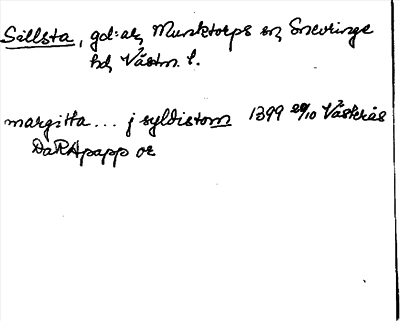 Sillsta, gd:ar, Munktorps sn, Snevringe
hd, Västm. l.
margitta ... j syldistom 1399 29/10 Västerås
DaRApapp or